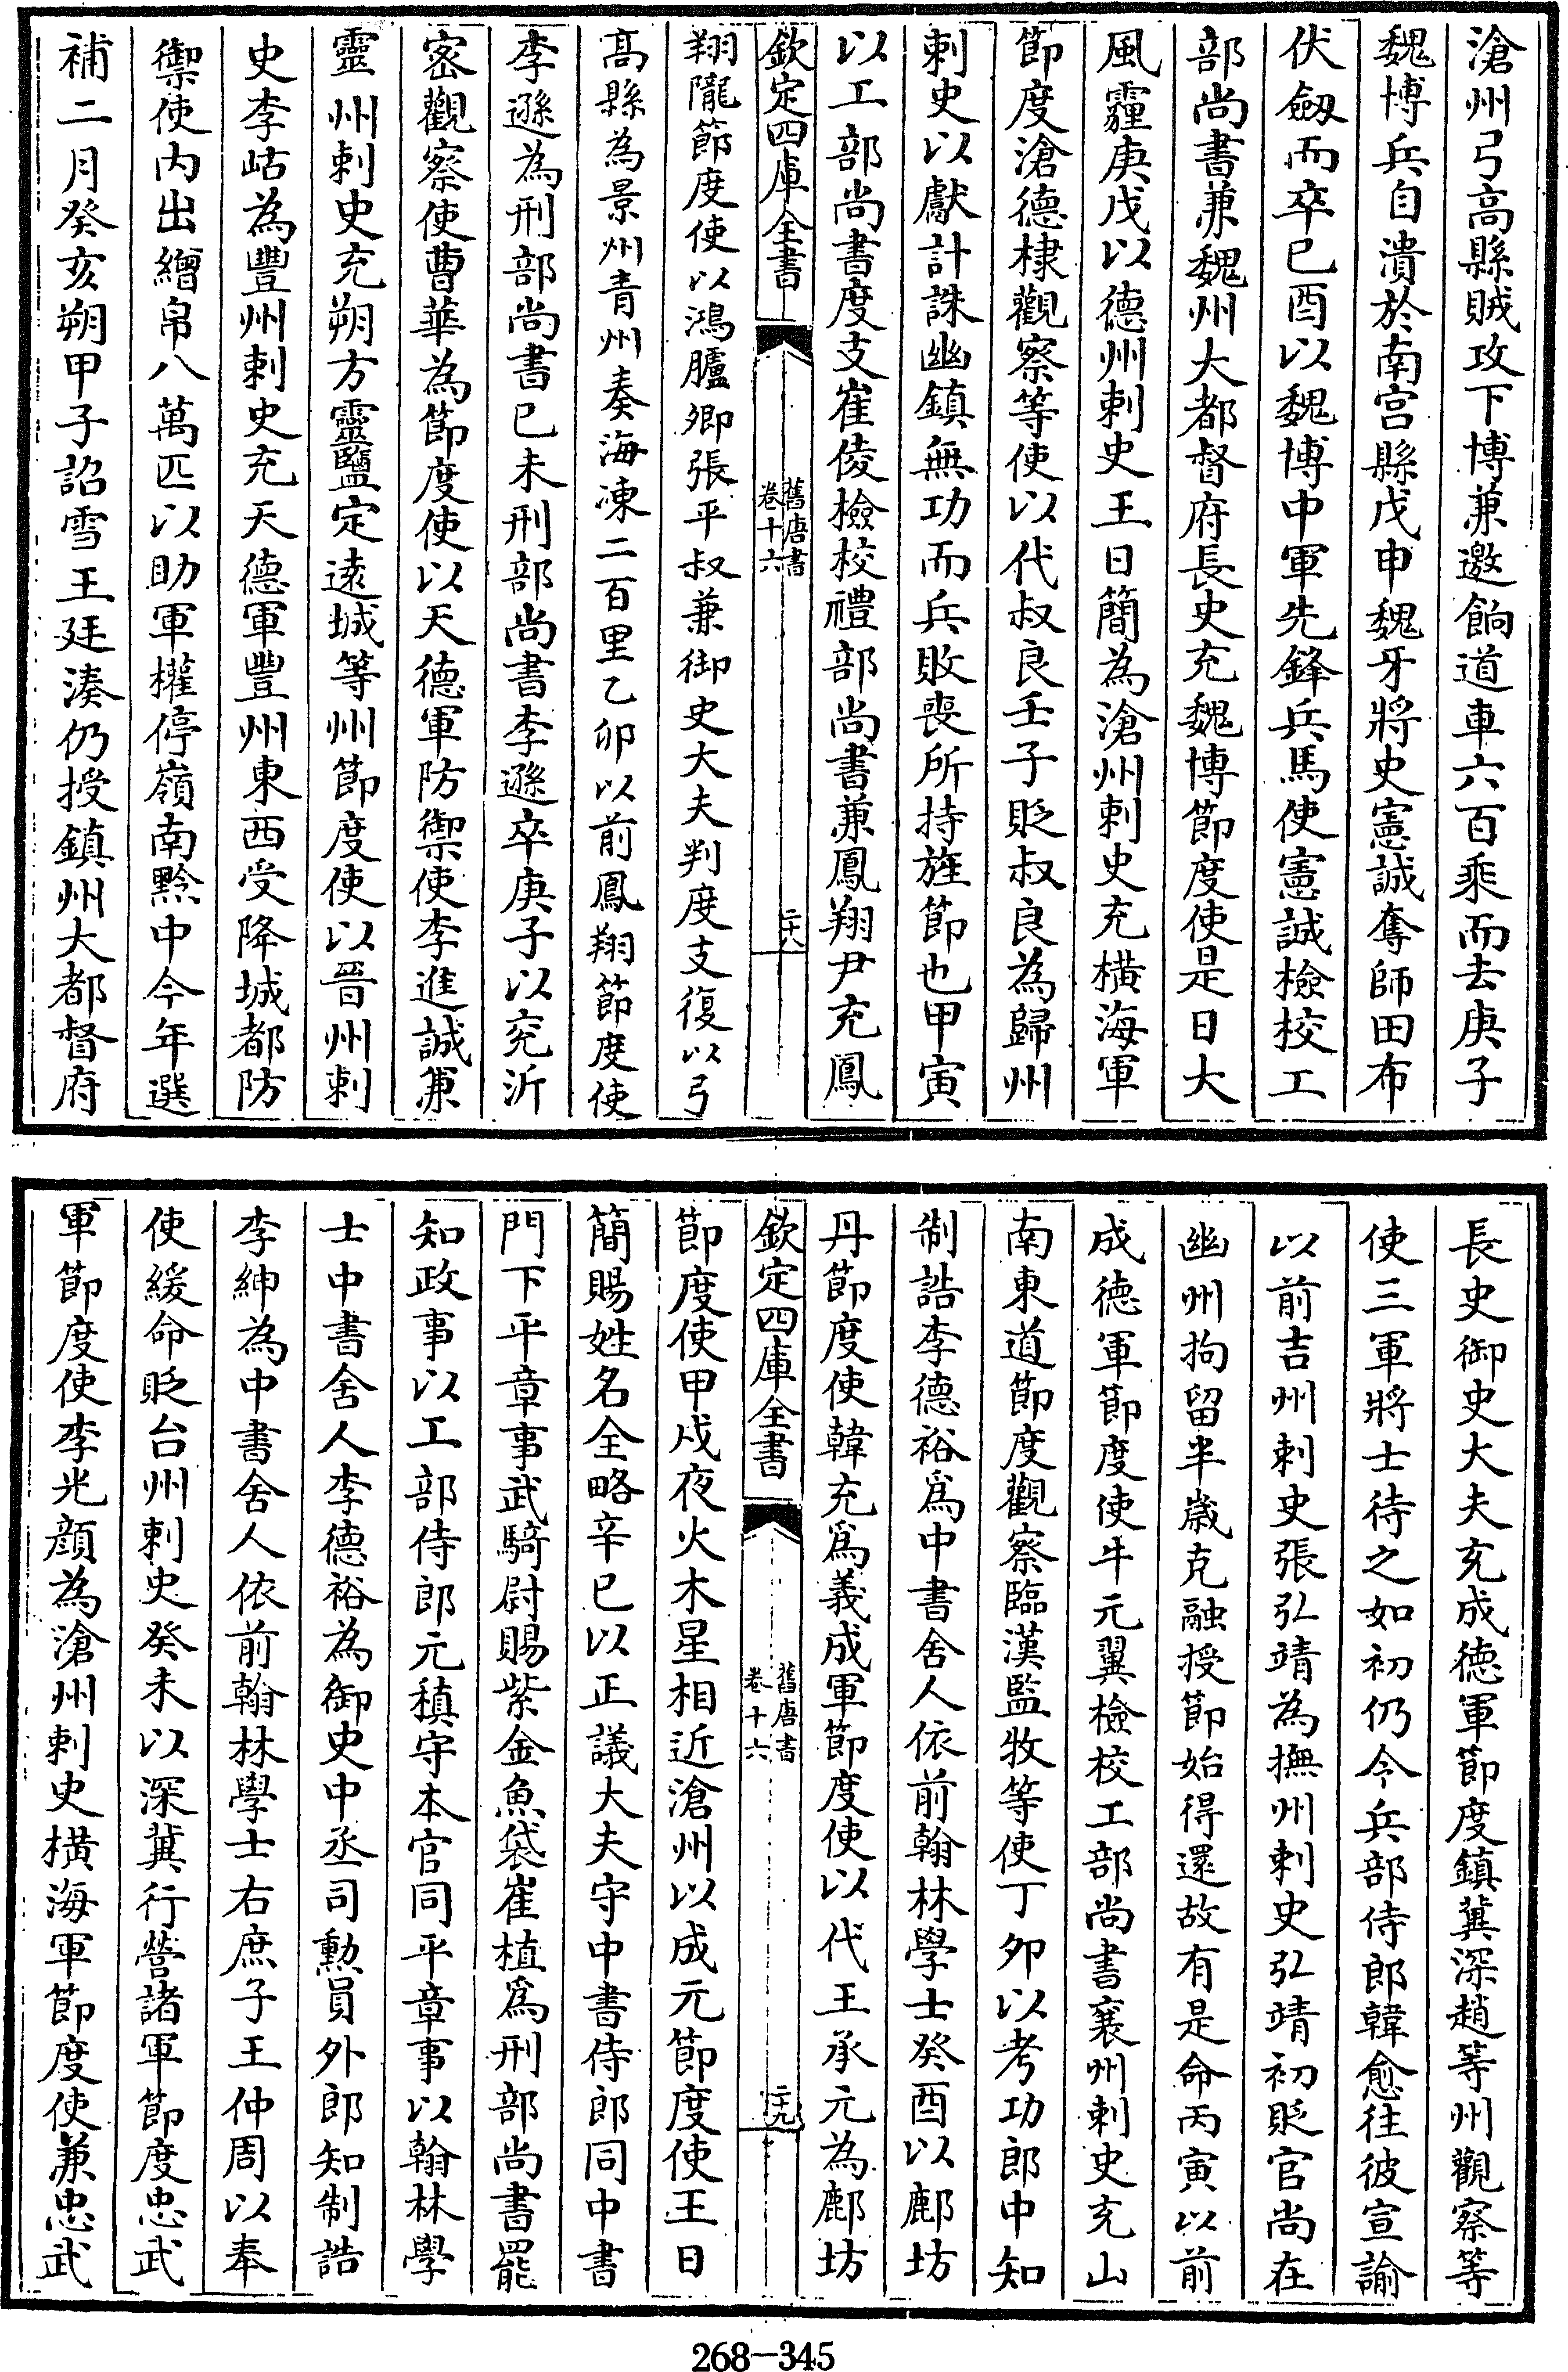 滄州弓高縣賊攻下博兼邀餉道車六百乘而去庚子
魏博兵自潰於南宮縣戊申魏牙將史憲誠奪師田布
伏劔而卒己酉以魏博中軍先鋒兵馬使憲誠檢校工
部尚書兼魏州大都督府長史充魏博節度使是日大
風霾庚戌以德州刺史王日簡為滄州刺史充橫海軍
節度滄德棣觀察等使以代叔良壬子貶叔良為歸州
刺史以獻計誅幽鎮無功而兵敗喪所持旌節也甲寅
以工部尚書度支崔倰檢校禮部尚書兼鳳翔尹充鳳
欽定四庫全書
舊唐書
卷十六
二十八
翔隴節度使以鴻臚卿張平叔兼御史大夫判度支復以弓
高縣為景州青州奏海凍二百里乙卯以前鳳翔節度使
李遜為刑部尚書己未刑部尚書李遜卒庚子以兗沂
密觀察使曹華為節度使以天德軍防禦使李進誠兼
靈州刺史充朔方靈鹽定遠城等州節度使以晉州刺
史李岵為豐州刺史充天德軍豐州東西受降城都防
禦使內出繒帛八萬匹以助軍權停嶺南黔中今年選
補二月癸亥朔甲子詔雪王廷湊仍授鎮州大都督府
長史御史大夫充成德軍節度鎮冀深趙等州觀察等
使三軍將士待之如初仍令兵部侍郎韓愈往彼宣諭
以前吉州刺史張弘靖為撫州刺史弘靖初貶官尚在
幽州拘留半歲克融授節始得還故有是命丙寅以前
成德軍節度使牛元翼檢校工部尚書襄州刺史充山
南東道節度觀察臨漢監牧等使丁夘以考功郎中知
制誥李德裕爲中書舍人依前翰林學士癸酉以鄜坊
丹節度使韓充爲義成軍節度使以代王承元為鄜坊
欽定四庫全書
舊唐書
卷十六
二十九
節度使甲戌夜火木星相近滄州以成元節度使王日
簡賜姓名全略辛巳以正議大夫守中書侍郎同中書
門下平章事武騎尉賜紫金魚袋崔植爲刑部尚書罷
知政事以工部侍郎元稹守本官同平章事以翰林學
士中書舍人李德裕為御史中丞司勲員外郎知制誥
李紳為中書舍人依前翰林學士右庶子王仲周以奉
使緩命貶台州刺史癸未以深冀行營諸軍節度忠武
軍節度使李光顔為滄州刺史橫海軍節度使兼忠武
268-345